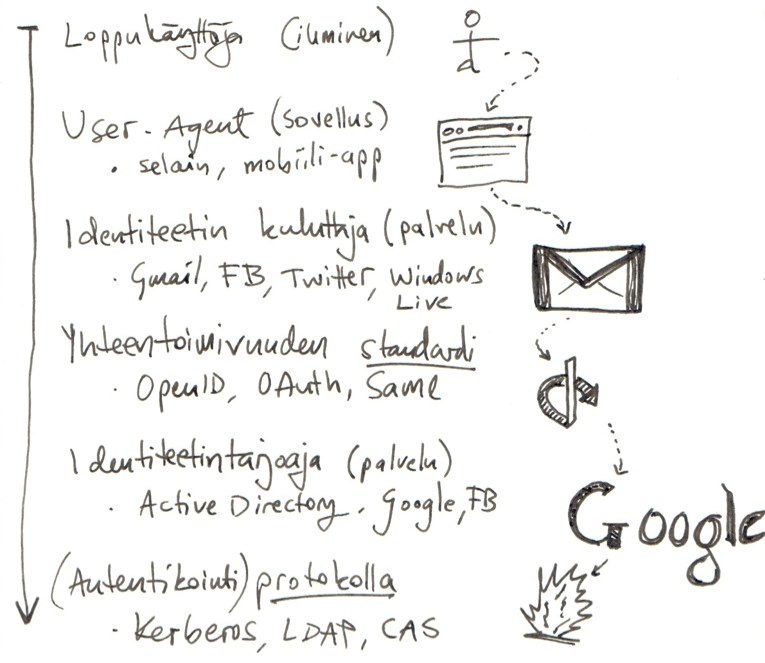 Loppukäyttäjä (ihminen)
User-Agent (sovellus)
• selain, mobiili-app
Identiteetin kuluttaja (palvelu)
• Gmail, FB, Twitter, Windows
Live
Yhteentoimivuuden standardi
• OpenID, OAuth, Saml
Identiteetintarjoaja (palvelu)
• Active Directory, Google, FB
Google
(Autentikointi) protokolla
• Kerberos, LDAP, CAS